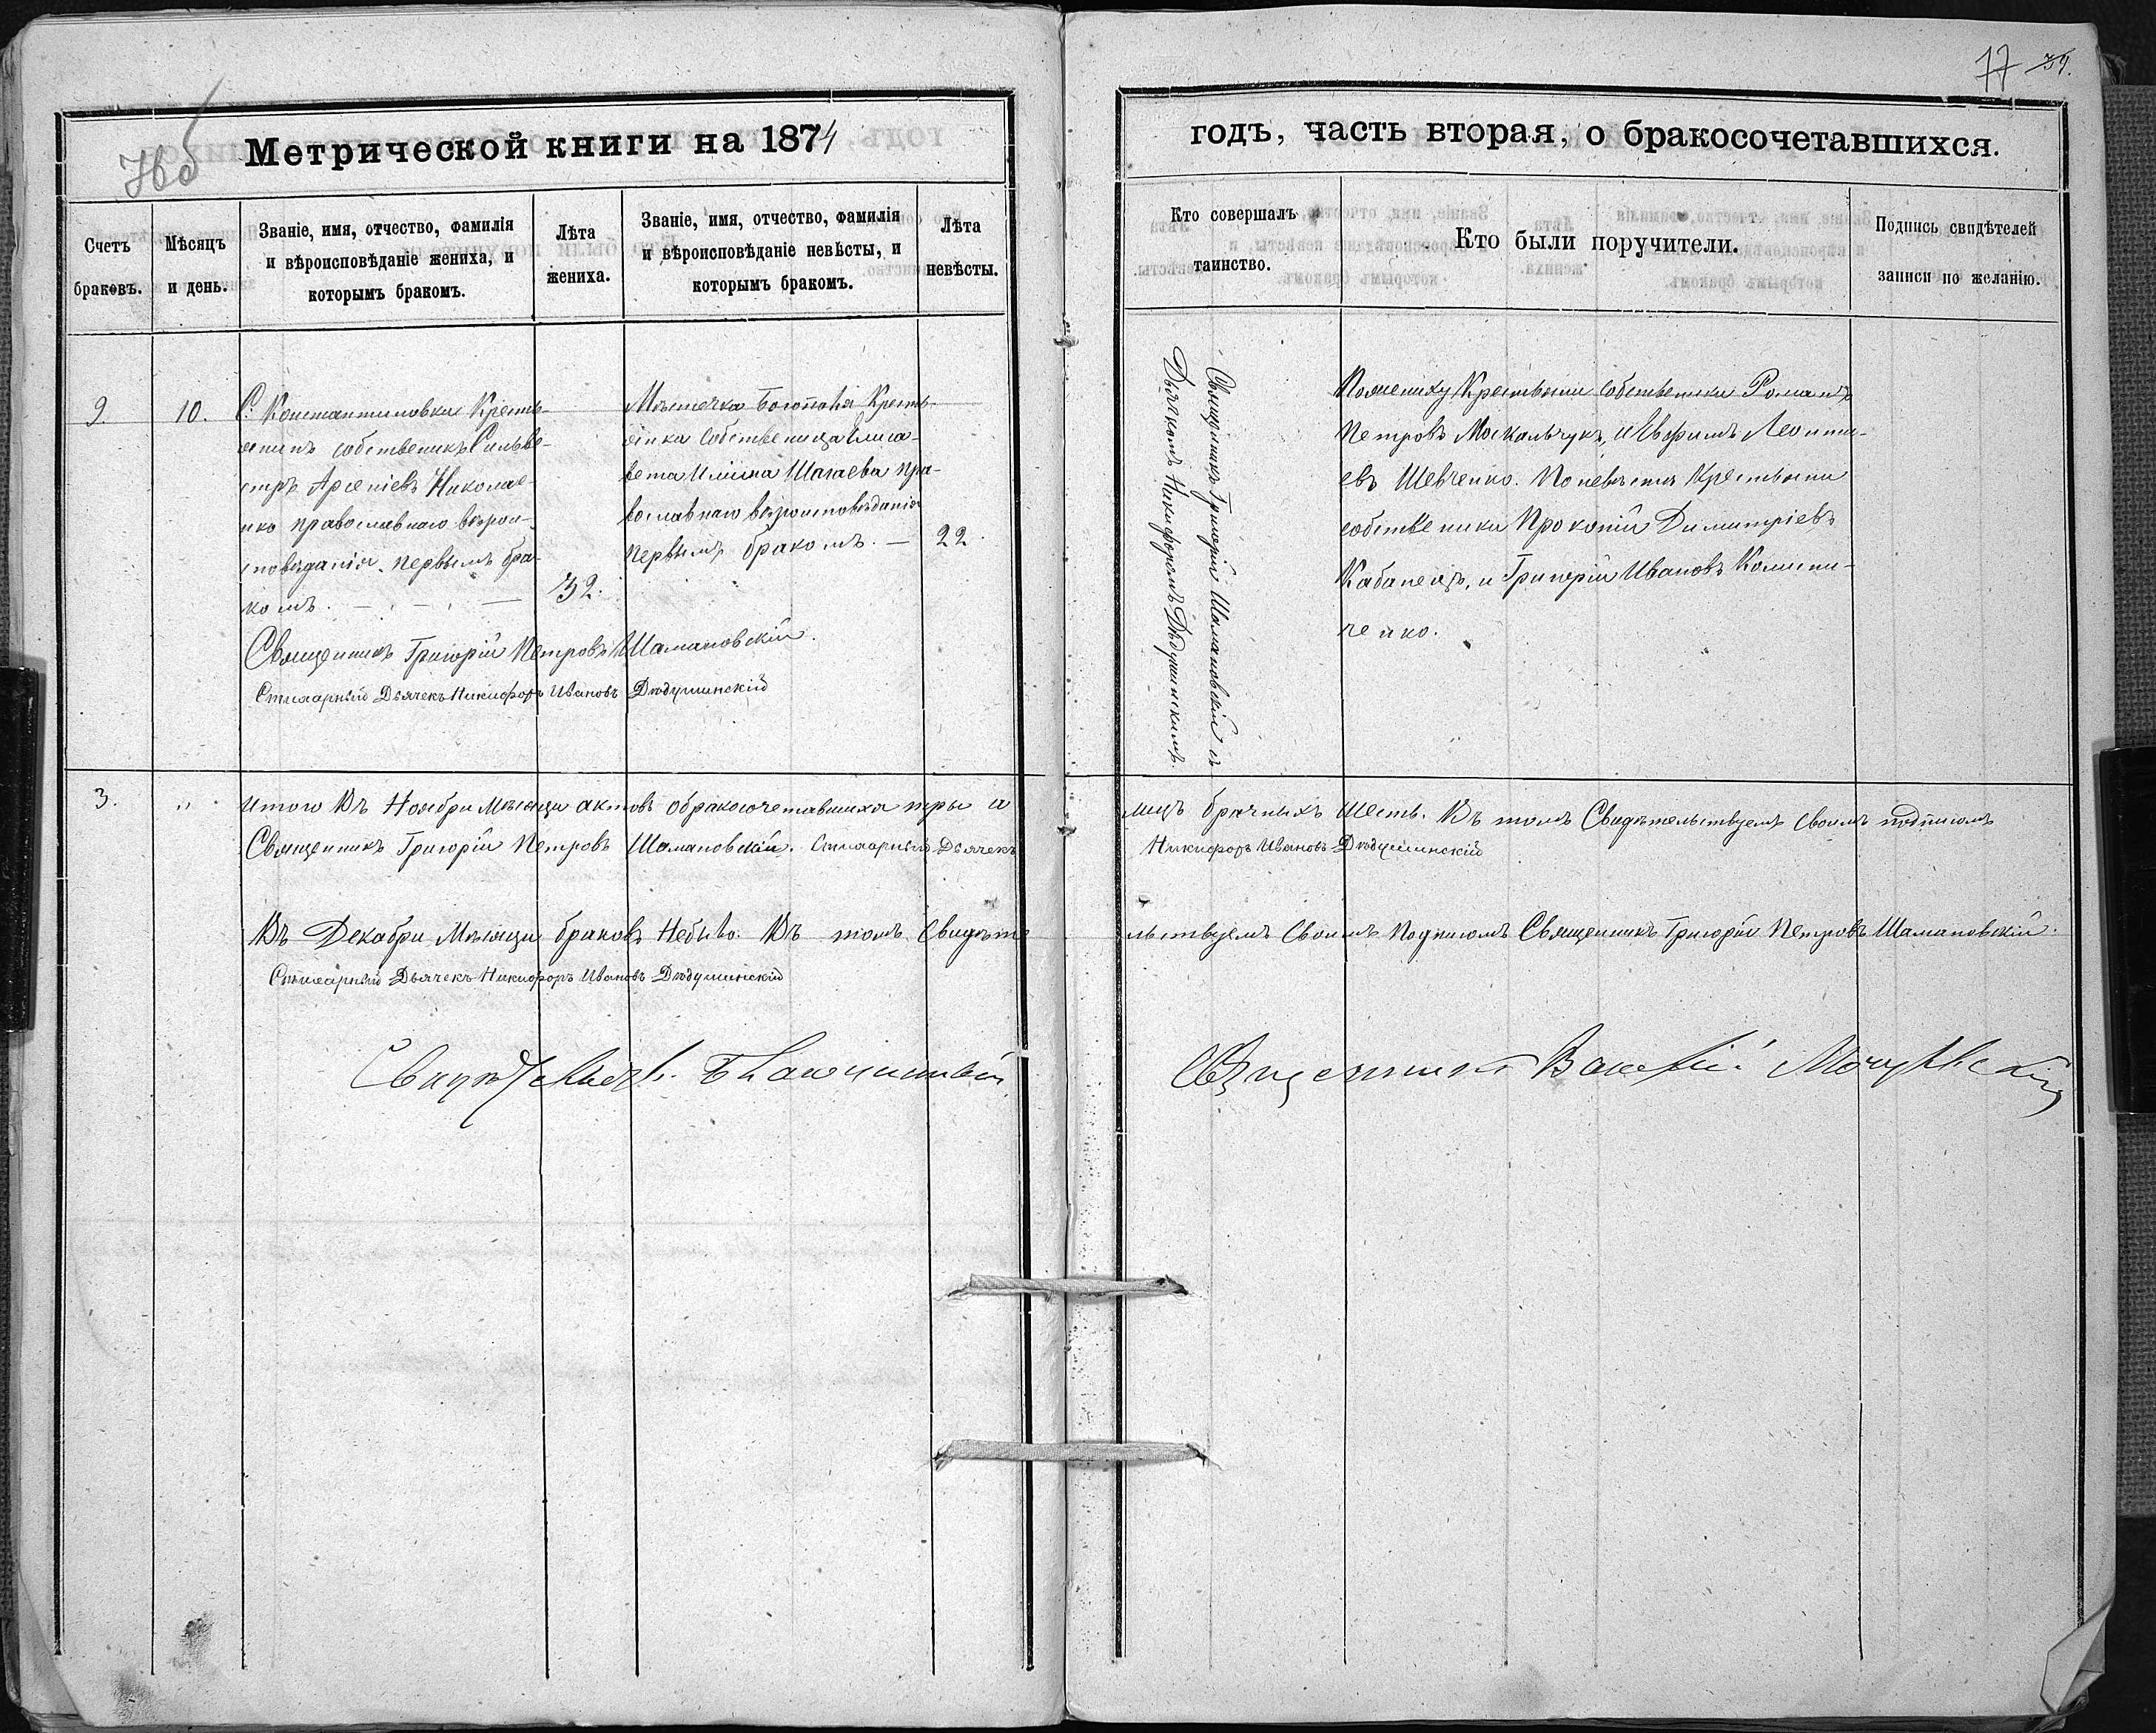 77 39.
76б
Метрической книги на 1874
годъ, часть вторая, о бракосочетавшихся.
Счетъ браковъ.
Мѣсяцъ и день.
Званіе, имя, отчество, фамилія
и вѣроисповѣданіе жениха, и
которымъ бракомъ.
Лѣта
жениха.
Званіе, имя, отчество, фамилія
и вѣроисповѣданіе невѣсты, и
которымъ бракомъ.
Лѣта
невѣсты.
Кто совершалъ
таинство.
Кто были поручители.
Подпись свидѣтелей
записи по желанію.
9.
10.
С. Константиновки Кресть-
янинъ собственикъ Сильве-
стръ Арсеніевъ Николае-
нко православнаго вѣрои-
сповѣданія, первымъ бра-
комъ.
32.
Мѣстечка Богополя Кресть-
янка собственица Елиса-
вета Иліина Шагаева пра-
вославнаго вѣроисповѣданія
первымъ бракомъ. —
22.
Священникъ Григорій Петровъ Шамановскій.
Стихарный Дьячекъ Никифоръ Ивановъ Дѣдушинскій
Священникъ Григорій Шамановскій съ
Дьячкомъ Никифоромъ Дѣдушинскимъ.
По жениху Крестьяни собственики Романъ
Петровъ Москальчукъ, и Ефримъ Леонти-
евъ Шевченко. По невѣстѣ Крестьяни
собственики Прокопій Димитріевъ
Кабанецъ, и Григорій Ивановъ
ченко.
3.
"
Итого Въ Ноябри Мѣсяци актовъ обракосочетавшихся тры а
лицъ брачныхъ шесть. Въ томъ Свидѣтельствуемъ Своимъ подписомъ
Священникъ Григорій Петровъ Шамановскій. Стихарный Дьячекъ
Никифоръ Ивановъ Дѣдушинскій
Въ Декабри Мѣсяци браковъ Небыло. Въ томъ Свидѣте
льствуемъ Своимъ Подписомъ Священникъ Григорій Петровъ Шамановскій.
Стихарный Дьячекъ Никифоръ Ивановъ Дѣдушинскій
Священникъ